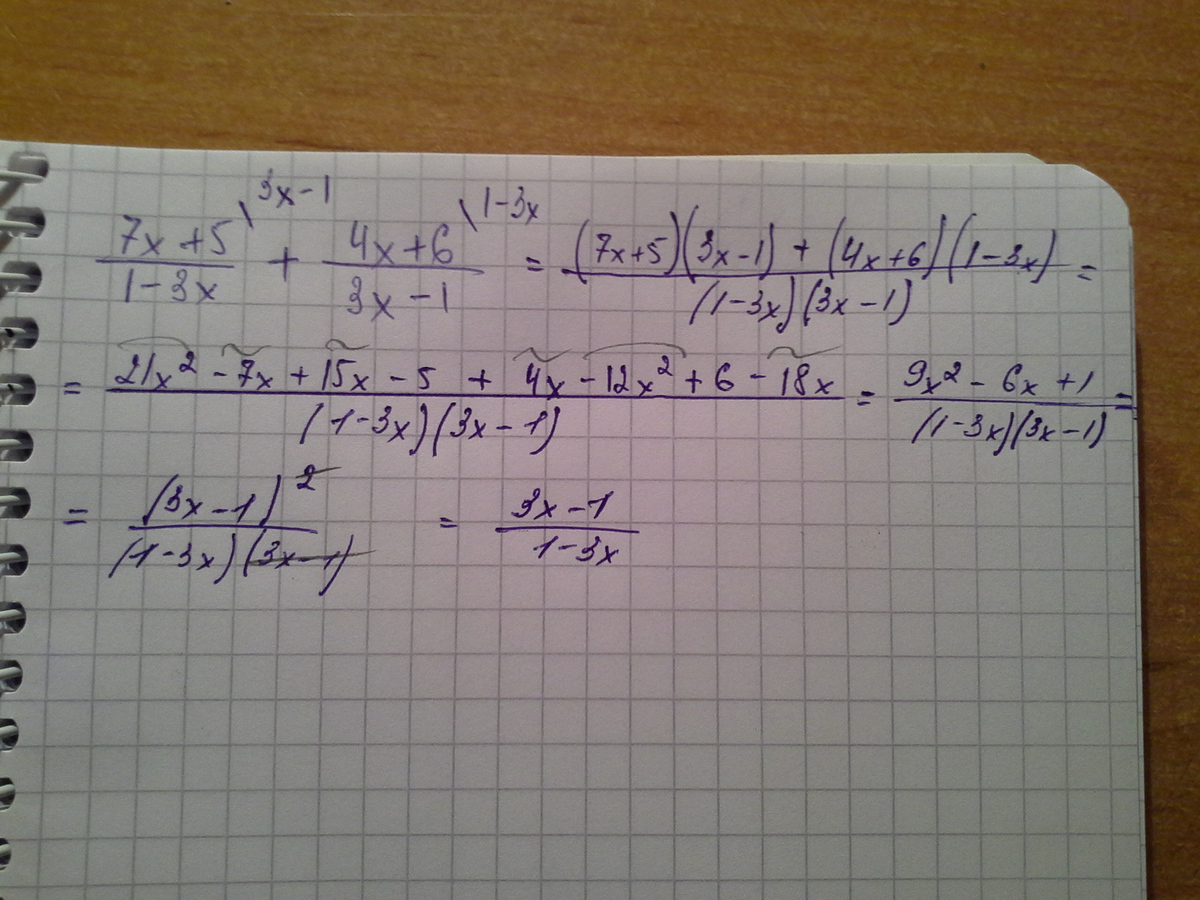 (7x+5)/(1-3x) \3x-1 + (4x+6)/(3x-1) \1-3x = ((7x+5)(3x-1)+(4x+6)(1-3x))/((1-3x)(3x-1)) =
= (21x² - 7x + 15x - 5 + 4x - 12x² + 6 - 18x)/((1-3x)(3x-1)) = (9x² - 6x + 1)/((1-3x)(3x-1)) =
= (3x-1)²/((1-3x)(3x-1)) = (3x-1)/(1-3x)